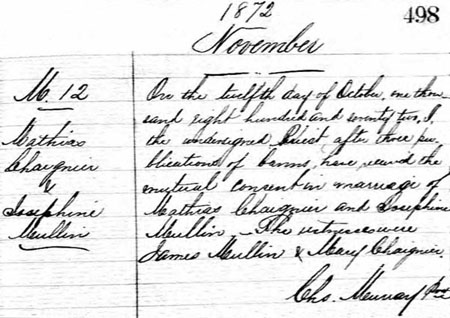 1872
498
November
M. 12
Mathias
Chaignier
&
Josephine
Mullin
On the twelfth day of October, one thou
sand eight hundred and seventy two, I,
the undersigned Priest after three pu
blications of banns, have receved the
mutual consent in marriage of
Mathias Chaignier and Josephine
Mullin. The witnesses were
James Mullin & Mary Chaignier.
Chs. Murray Pst